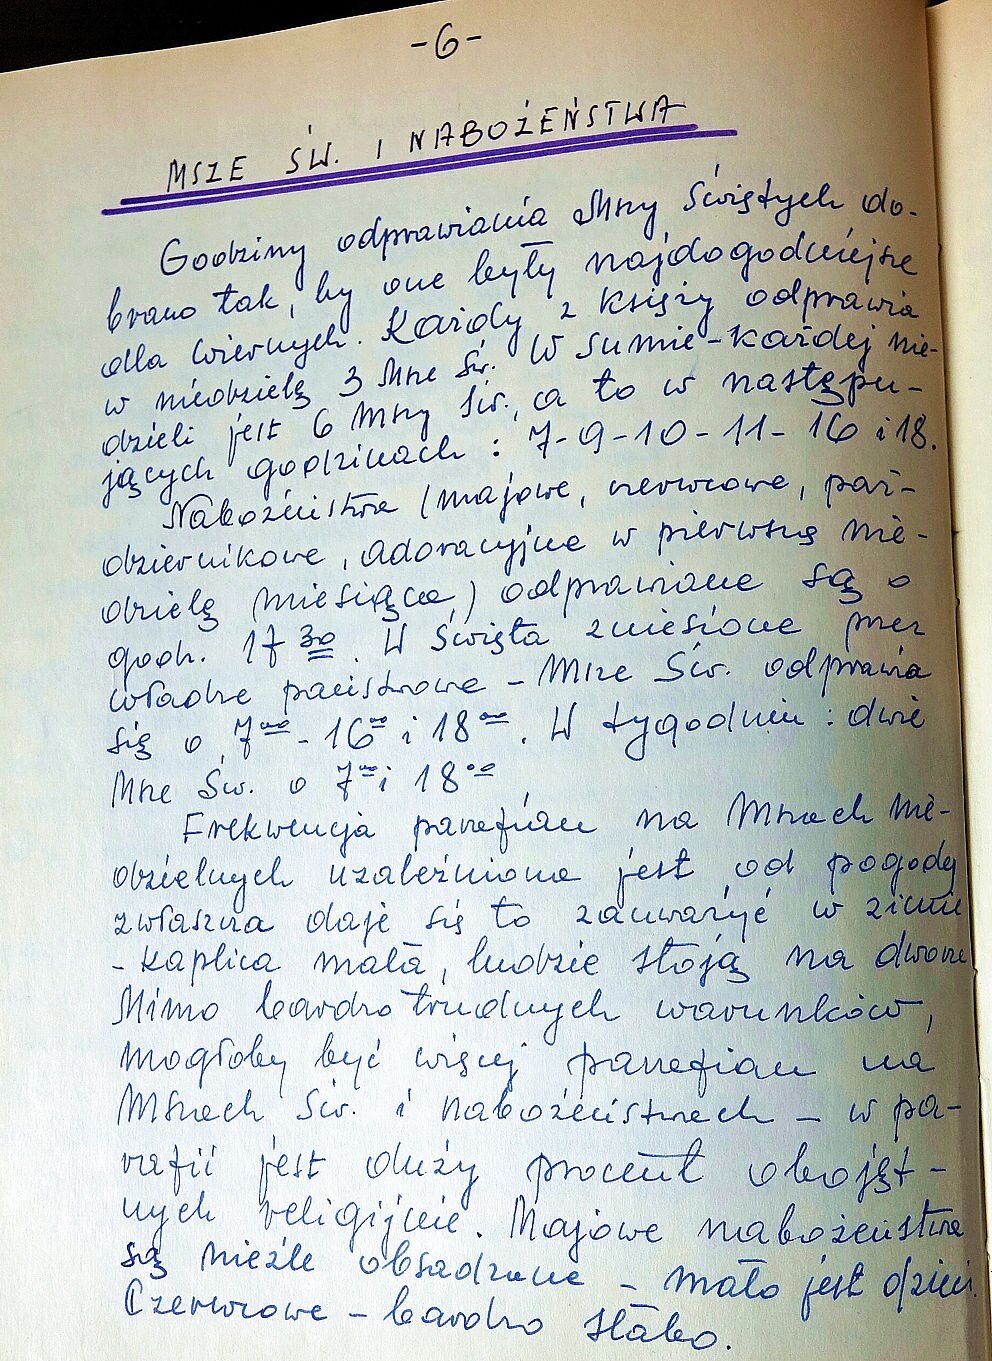 -6-
MSZE ŚW. I NABOŻEŃSTWA
Godziny odprawiania Mszy Świętych do-
brano tak, by one były najdogodniejsze
dla wiernych. Każdy z księży odprawia
w niedzielę 3 Msze św. W sumie - każdej nie-
dzieli jest 6 Mszy św., a to w następu-
jących godzinach : 7-9-10-11-16 i 18.
Nabożeństwa (majowe, czerwcowe, paź-
dziernikowe, adoracyjne w pierwszą nie-
dzielę miesiąca,) odprawiane są o
godz. 17 30. W święta zniesione przez
władze państwowe - Msze Św. odprawia
się o 7 oo - 16 oo i 18 oo. W tygodniu : dwie
Msze Św. o 7 oo i 18 oo
Frekwencja parafian na Mszach nie-
dzielnych uzależniona jest od pogody
zwłaszcza daje się to zauważyć w zimie
- kaplica mała, ludzie stoją na dworze
Mimo bardzo trudnych warunków,
mogłoby być więcej parafian na
Mszach Św. i nabożeństwach - w pa-
rafii jest duży procent obojęt-
nych religijnie. Majowe nabożeństwa
są nieźle obsadzone - mało jest dzieci.
Czerwcowe - bardzo słabo.